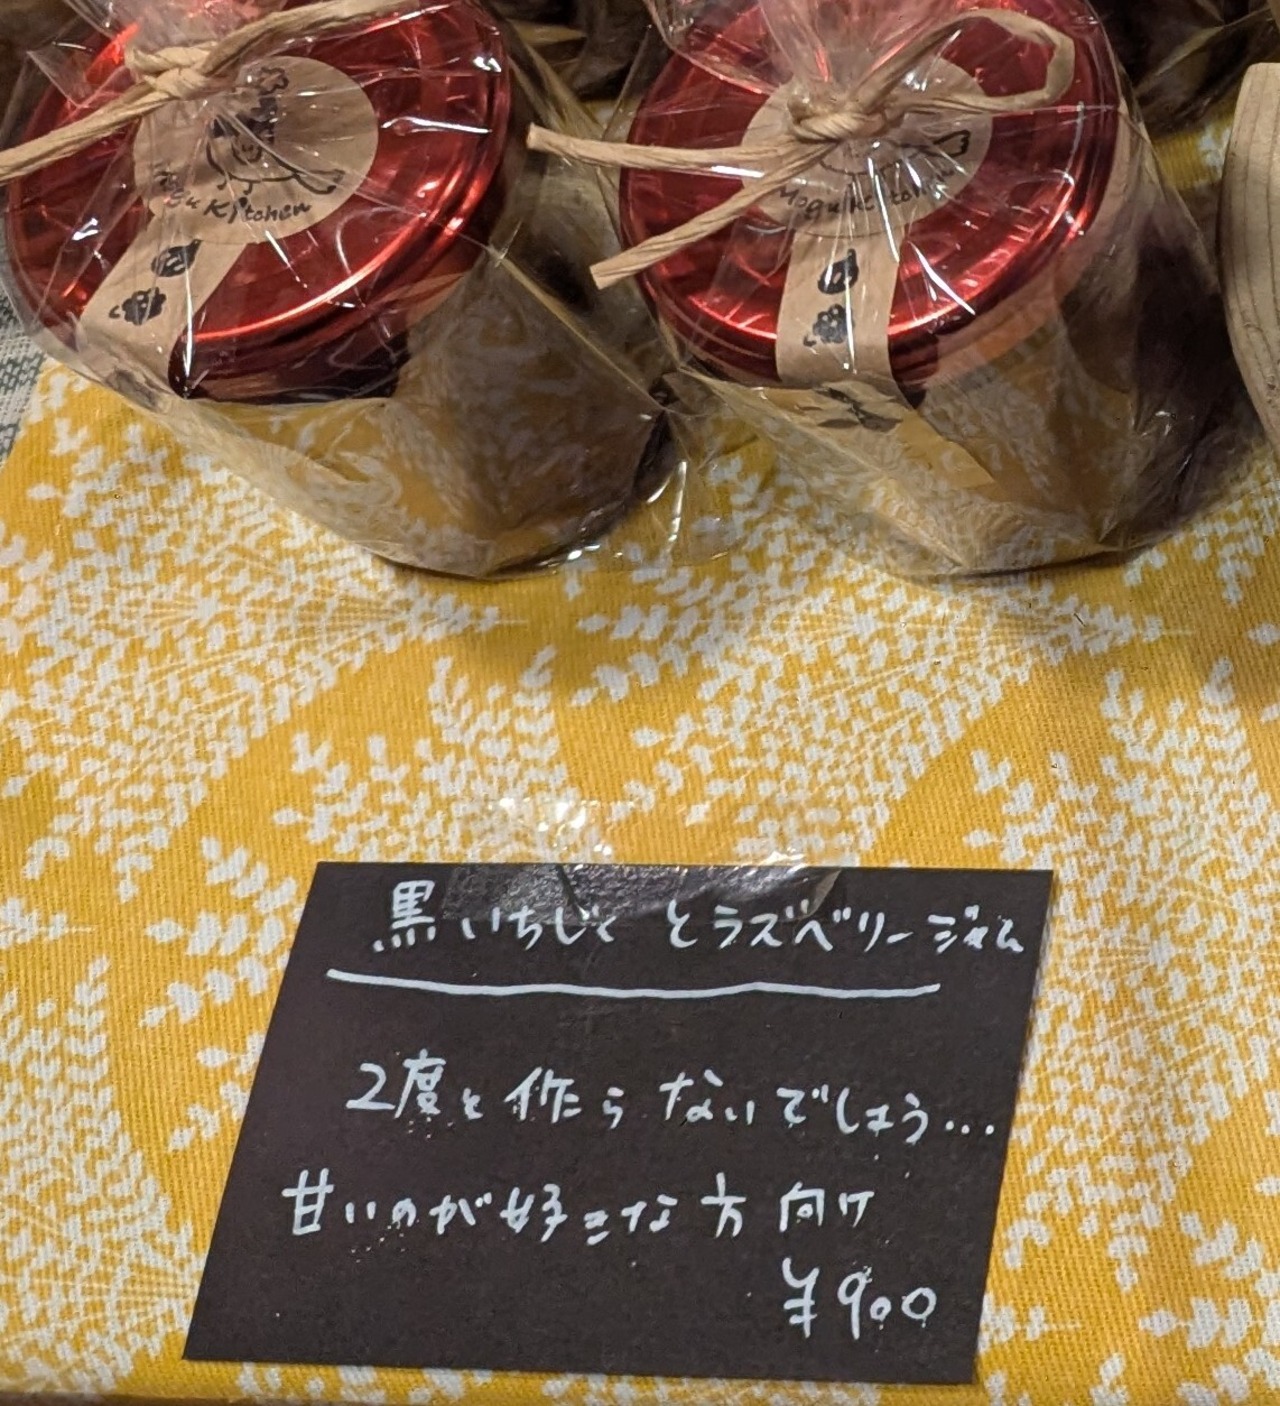 Kitchen
Mogu Kitchen
黒いちじくとラズベリージャム
2度と作らないでしょう...
甘いのが好きな方向け
¥900